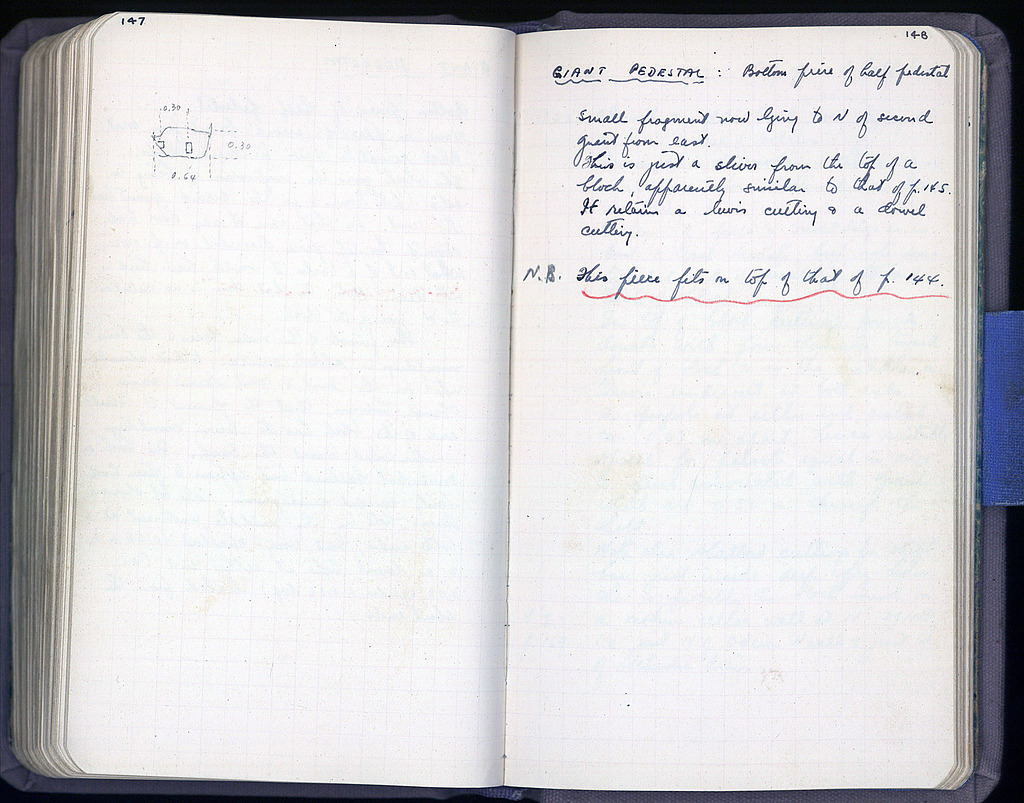 147
0.30
0.30
0.64
148
GIANT PEDESTAL : Bottom piece of half pedestal
Small fragment now lying to N of second
giant from east.
This is just a sliver from the top of a
block, apparently similar to that of p. 145.
It retains a lewis cutting & a dowel
cutting.
N.B. This piece fits on top of that of p. 144.